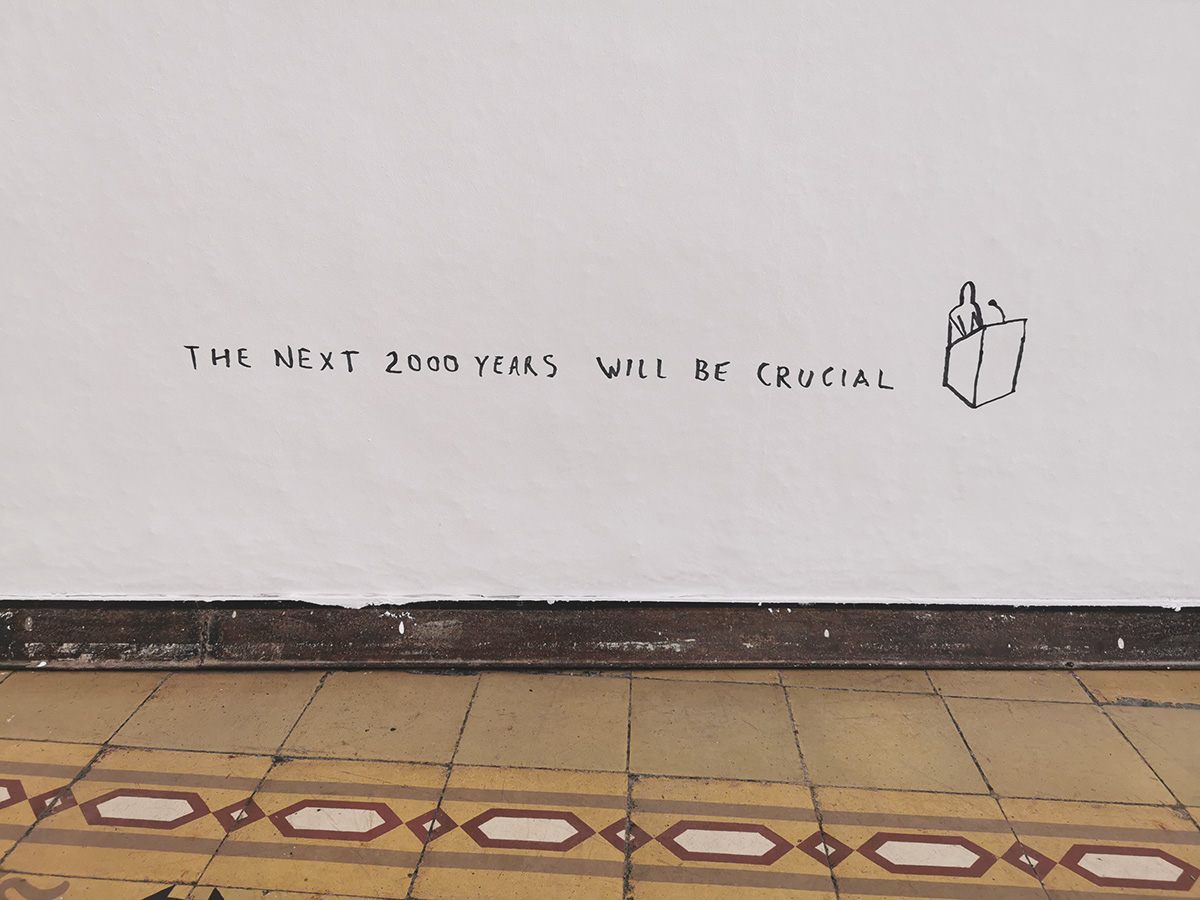 THE NEXT 2000 YEARS WILL BE CRUCIAL